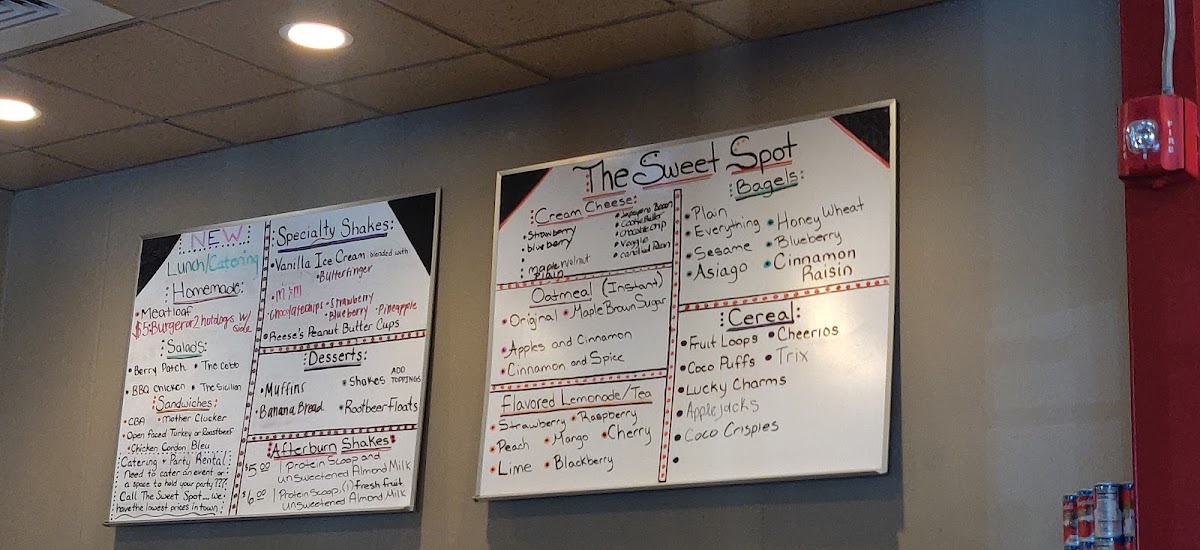 NEW
Lunch/Catering
Homemade:
• Meatloaf
$5:Burger or 2 hotdogs w/
side
Salads:
• Berry Patch • The Cobb
• BBQ Chicken • The Sicilian
Sandwiches:
• CBA • Mother Clucker
• Open faced Turkey or Roastbeef
• Chicken Cordon Bleu
Catering + Party Rental
Need to cater an event or
a space to hold your party???
Call The Sweet Spot... we
have the lowest prices in town.
Specialty Shakes:
• Vanilla Ice Cream blended with
• Butterfinger
• m&m
• Chocolate chips • Strawberry
• Blueberry • Pineapple
• Reese's Peanut Butter Cups
Desserts:
• Muffins • Shakes ADD TOPPINGS
• Banana Bread • Rootbeer Floats
Afterburn Shakes
$5.00 1 Protein Scoop and
unsweetened Almond Milk
$6.00 1 Protein Scoop, (1) fresh fruit
unsweetened Almond Milk
The Sweet Spot
Cream Cheese:
• Strawberry
• blueberry
• maple walnut
Plain
• Jalapeno Bacon
• Cookie Butter
• Chocolate Chip
• Veggie
Oatmeal (Instant)
• Original • Maple Brown Sugar
• Apples and Cinnamon
• Cinnamon and Spice
Flavored Lemonade/Tea
• Strawberry • Raspberry
• Peach • Mango • Cherry
• Lime • Blackberry
:Bagels:
• Plain
• Everything • Honey Wheat
• Sesame • Blueberry
• Asiago • Cinnamon
Raisin
:Cereal:
• Fruit Loops • Cheerios
• Coco Puffs • Trix
• Lucky Charms
• Apple jacks
• Coco Crispies
FIRE